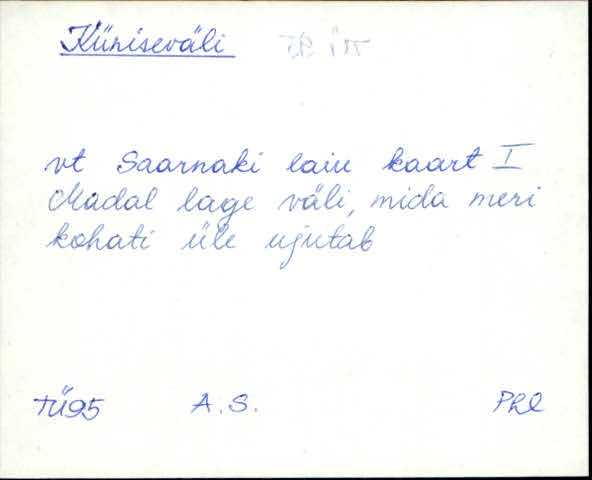 Küniseväli
vt Saarnaki laiu kaart I
Madal lage väli, mida meri
kohati üle ujutab
TÜ95 A.S. Phl